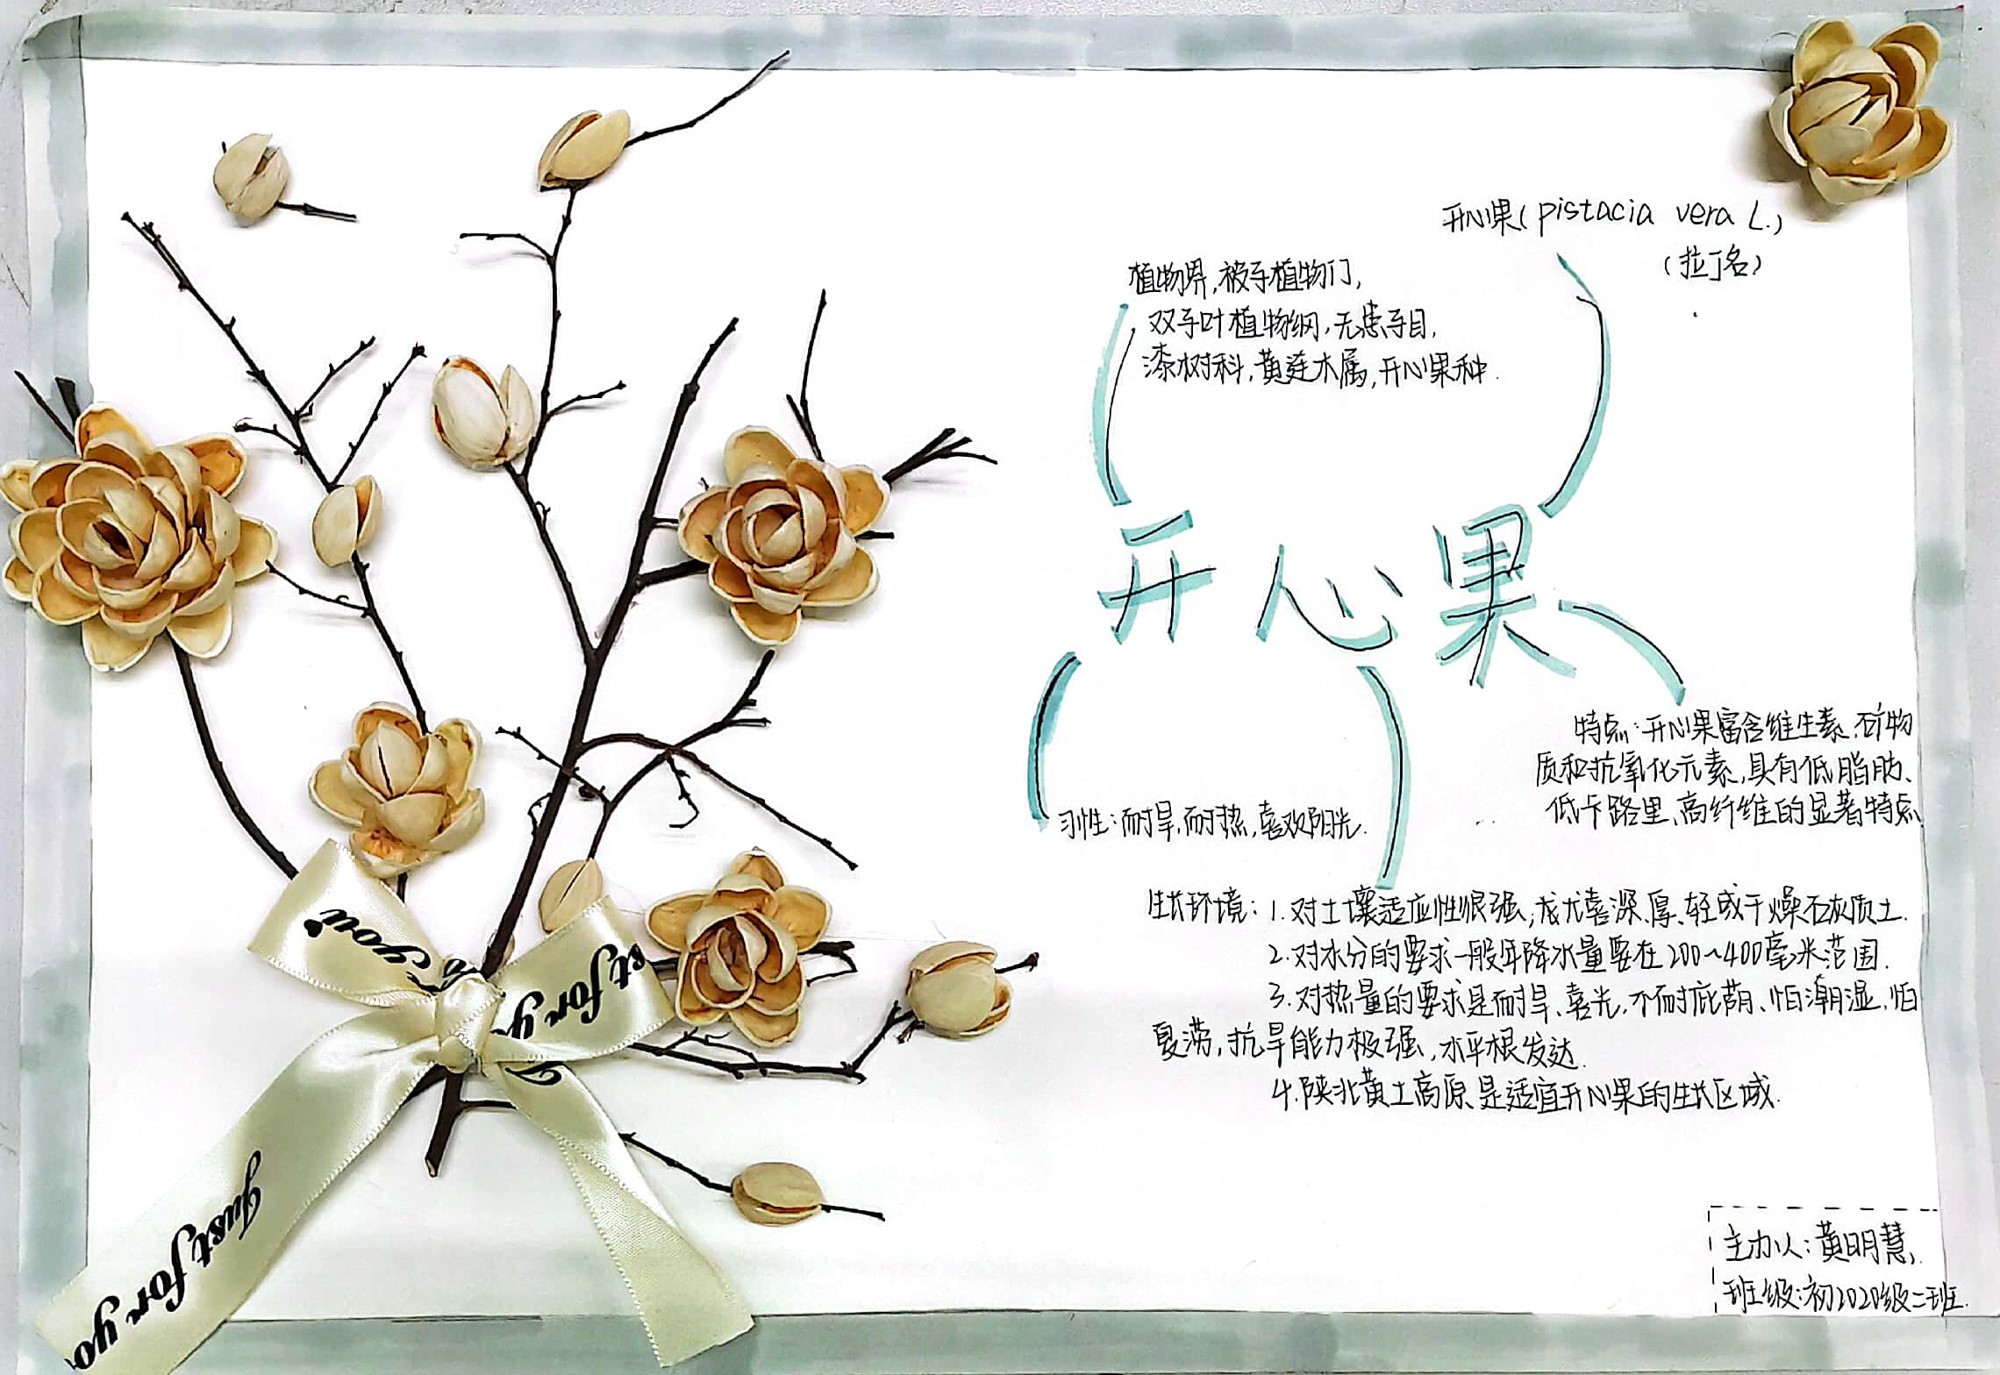 开心果(pistacia vera L.)
(拉丁名)
植物界,被子植物门,
双子叶植物纲,无患子目,
漆树科,黄连木属,开心果种.
开心果
特点:开心果富含维生素、矿物
质和抗氧化元素,具有低脂肪、
低卡路里、高纤维的显著特点
习性:耐旱,耐热,喜欢阳光.
生长环境:1.对土壤适应性很强,尤喜深、厚、轻或干燥石灰质土.
2.对水分的要求一般年降水量要在200~400毫米范围.
3.对热量的要求是耐旱、喜光,不耐庇荫、怕潮湿,怕
夏涝,抗旱能力极强,水平根发达.
4.陕北黄土高原是适宜开心果的生长区域.
主办人:黄明慧,
班级:初2020级二班.
you
st for y
Just for yo